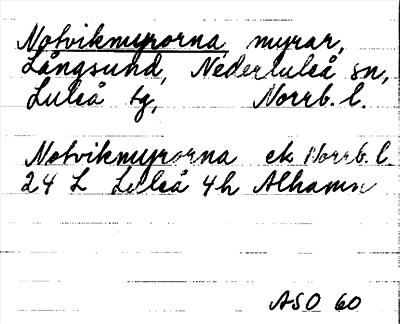 Notvikmyrorna, myrar,
Långsund, Nederluleå sn,
Luleå tg, Norrb. l.
Notvikmyrorna ek Norrb. l.
24 L Luleå 4h Alhamn
ASO 60